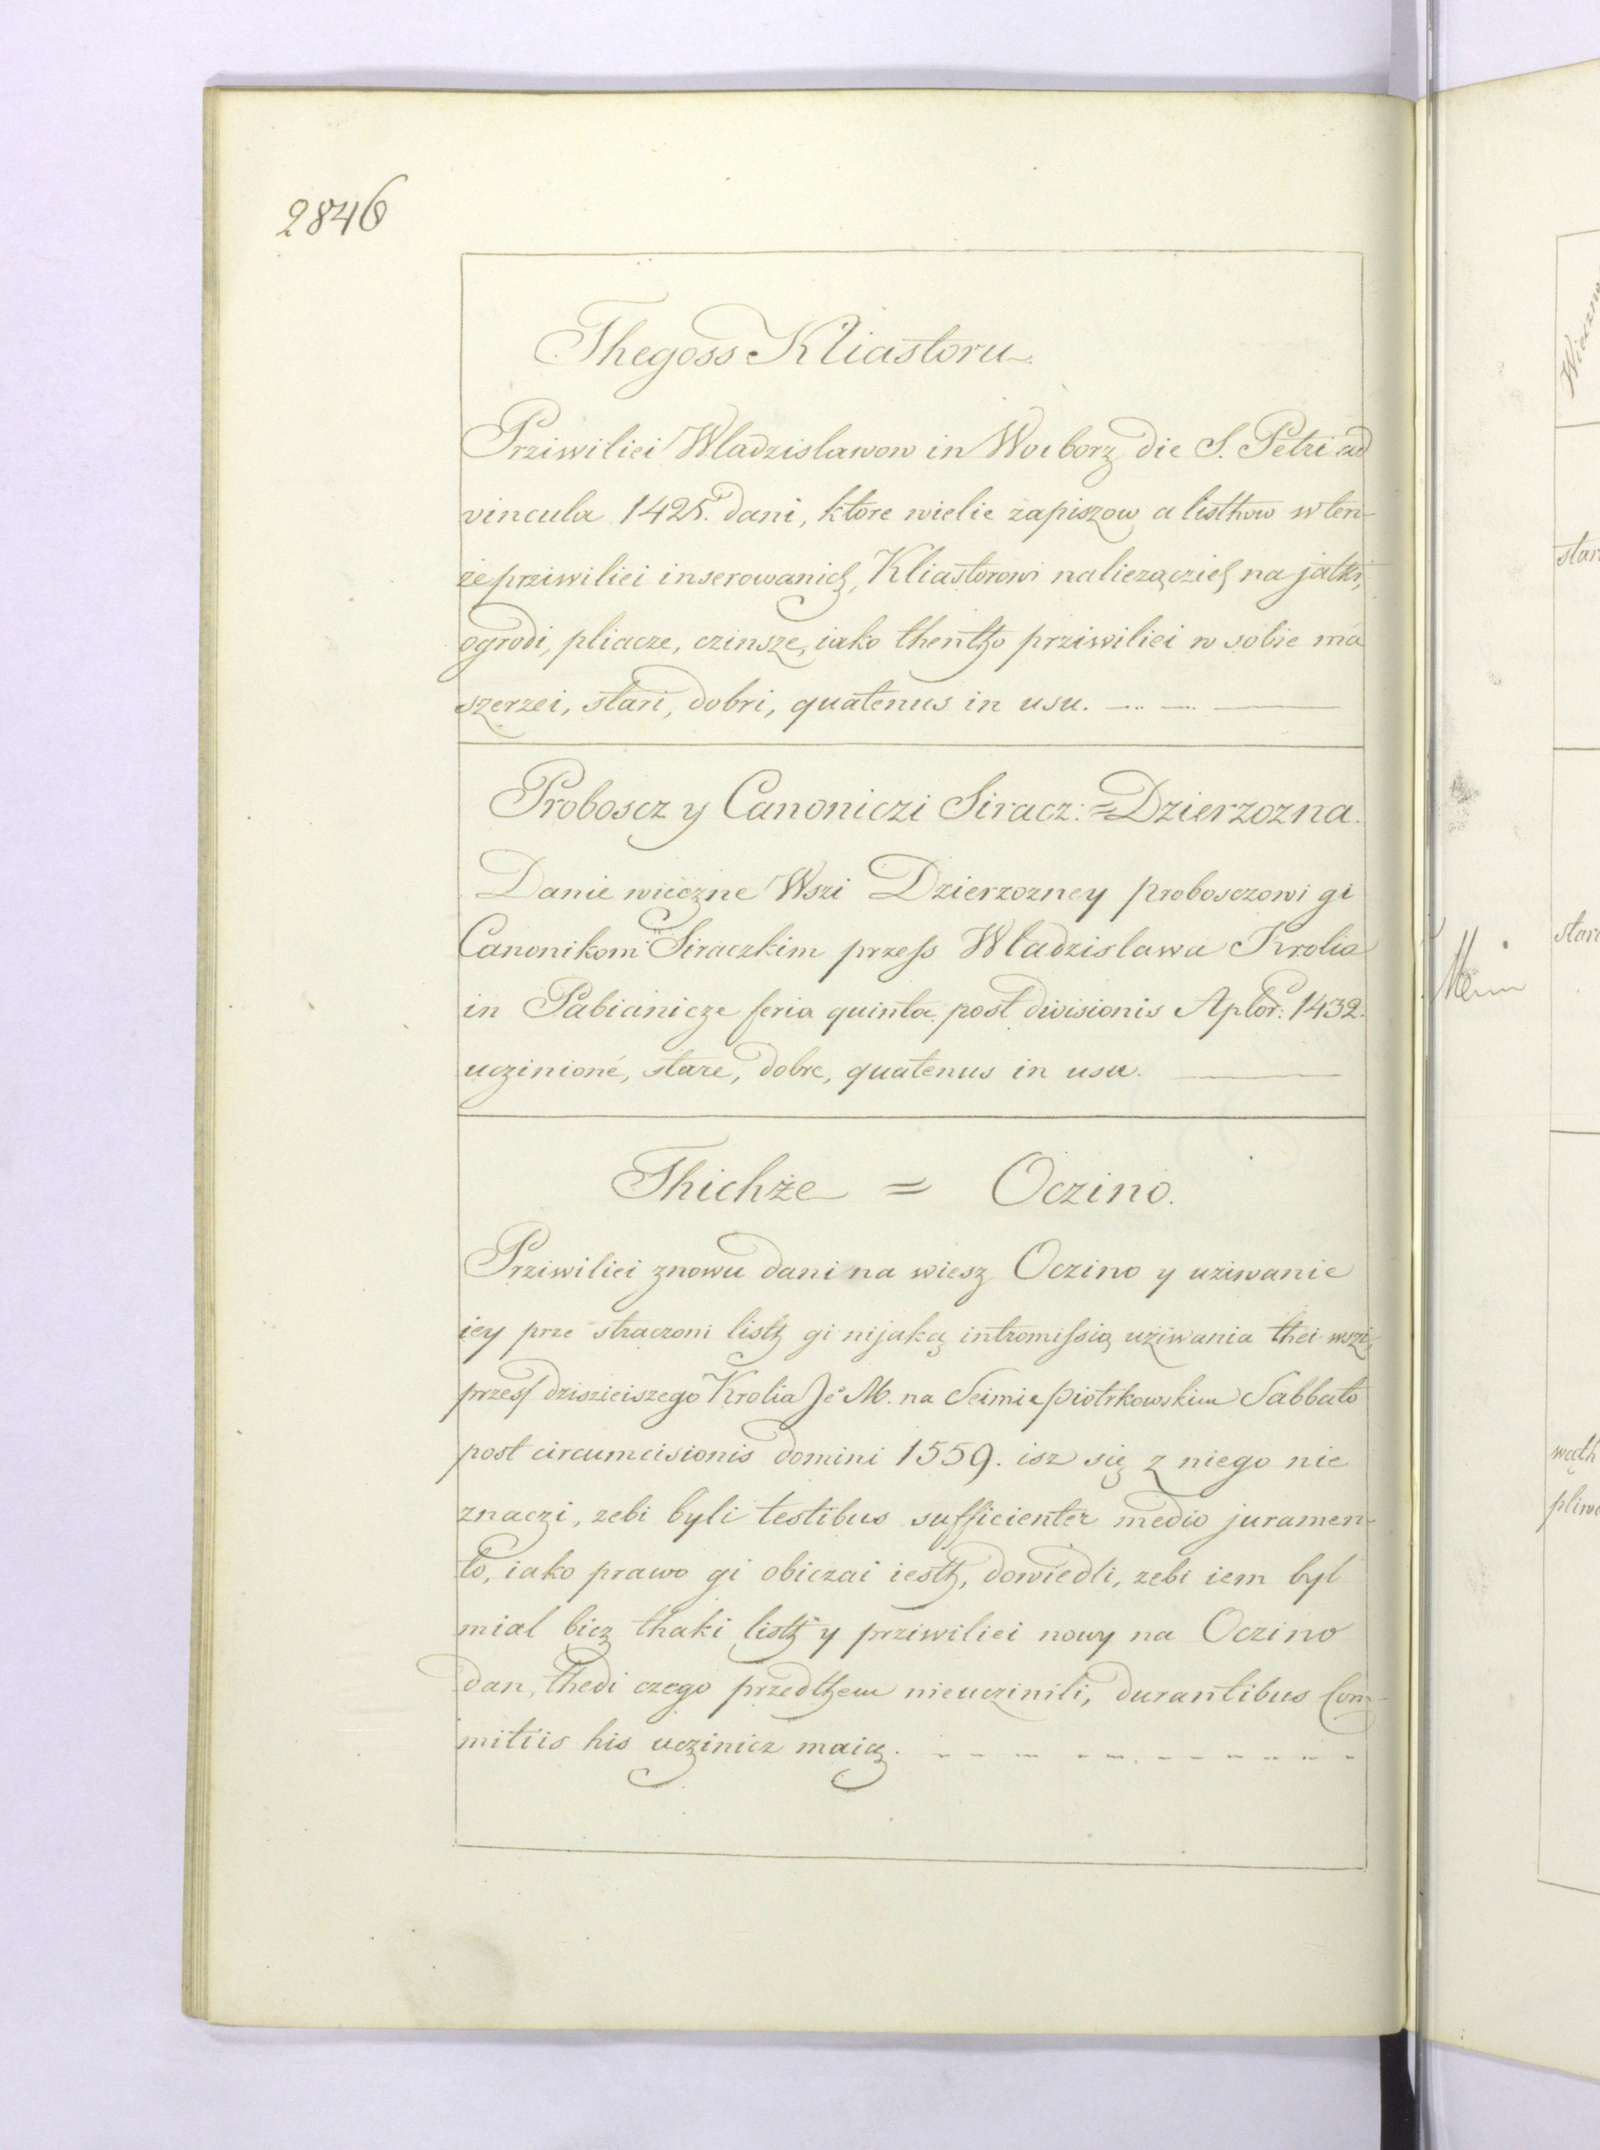 2846
Thegoss Kliastoru
Priwiliei Wladzislawow in Woiborz die S. Petri ad
vincula 1425. dani, ktore wielie zapiszow a listhow w ten-
że priwiliei inserowanich, Kliastorowi naliezączich na jatki,
ogrodi, pliacze, czinsze, iako thentho priwiliei w sobie ma
szerzei, stari, dobri, quatenus in usu.
Proboscz y Canoniczi Siracz: = Dzierzozna.
Danie wieczne Wszi Dzierzozney proboszczowi gi
Canonikom Siraczkim przess Wladzislawa Krolia
in Pabianicze feria quinta post divisionis Aptor: 1432.
uczinioné, stare, dobre, quatenus in usu.
Thichże = Oczino.
Priwiliei znowu dani na wiesz Oczino y uziwanie
iey prze straczoni listh gi nijaką intromissią uziwania thei wszi,
przess dzisieiszego Krolia Je° M. na Seimie piotrkowskim Sabbato
post circumcisionis domini 1559. isz się z niego nie
znaczi, zebi byli testibus sufficienter medio juramen-
to, iako prawo gi obiczai iesth, dowiedli, zebi iem byl
mial bicz thaki listh y priwiliei nowy na Oczino
dan, thedi czego przedthem nieuczinili, durantibus Com-
mitiis his uczinicz maią.
Wieczno
star
stare
wąth
pliw